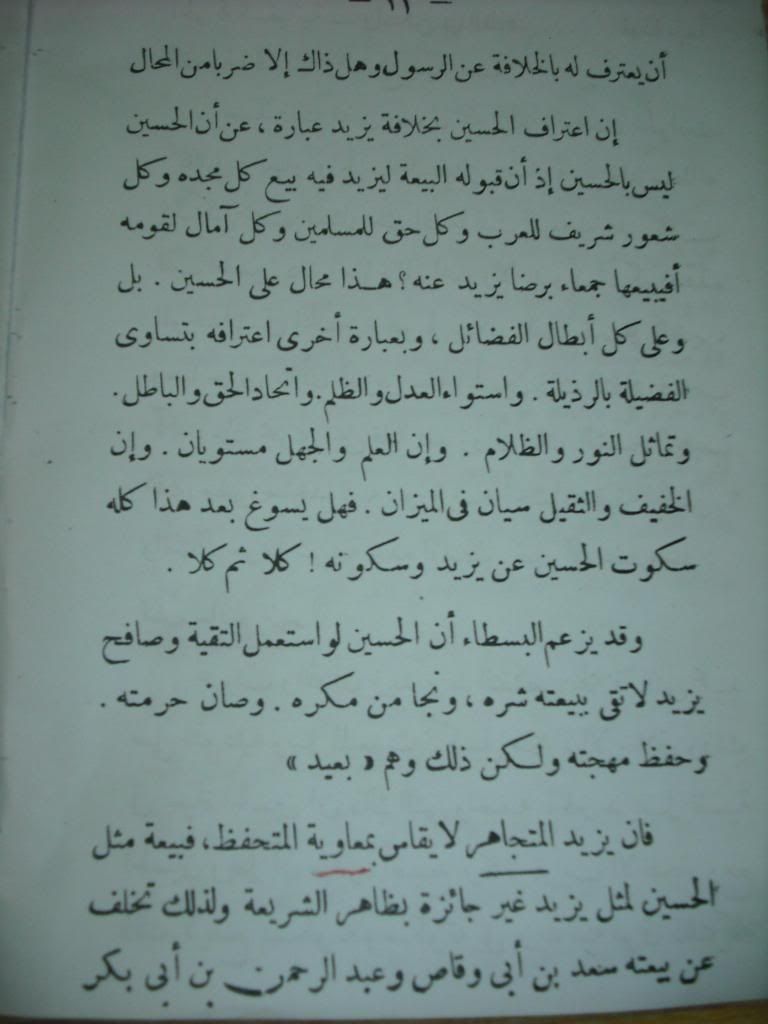 أن يعترف له بالخلافة عن الرسول وهل ذاك إلا ضربا من المحال
إن اعتراف الحسين بخلافة يزيد عبارة ، عن أن الحسين
ليس بالحسين إذ أن قبوله البيعة ليزيد فيه بيع كل مجده وكل
شعور شريف للعرب وكل حق للمسلمين وكل آمال لقومه
أفيبيعها جمعاء برضا يزيد عنه ؟ هذا محال على الحسين . بل
وعلى كل أبطال الفضائل ، وبعبارة أخرى اعترافه بتساوى
الفضيلة بالرذيلة . واستواء العدل والظلم . واتحاد الحق والباطل .
وتماثل النور والظلام . وإن العلم والجهل مستويان . وإن
الخفيف والثقيل سيان فى الميزان . فهل يسوغ بعد هذا كله
سكوت الحسين عن يزيد وسكونه ! كلا ثم كلا .
وقد يزعم البسطاء أن الحسين لو استعمل التقية وصافح
يزيد لاتقى ببيعته شره ، ونجا من مكره . وصان حرمته .
وحفظ مهجته ولكن ذلك وهم « بعيد »
فان يزيد المتجاهر لا يقاس بمعاوية المتحفظ ، فبيعة مثل
الحسين لمثل يزيد غير جائزة بظاهر الشريعة ولذلك تخلف
عن بيعته سعد بن أبى وقاص وعبد الرحمن بن أبى بكر